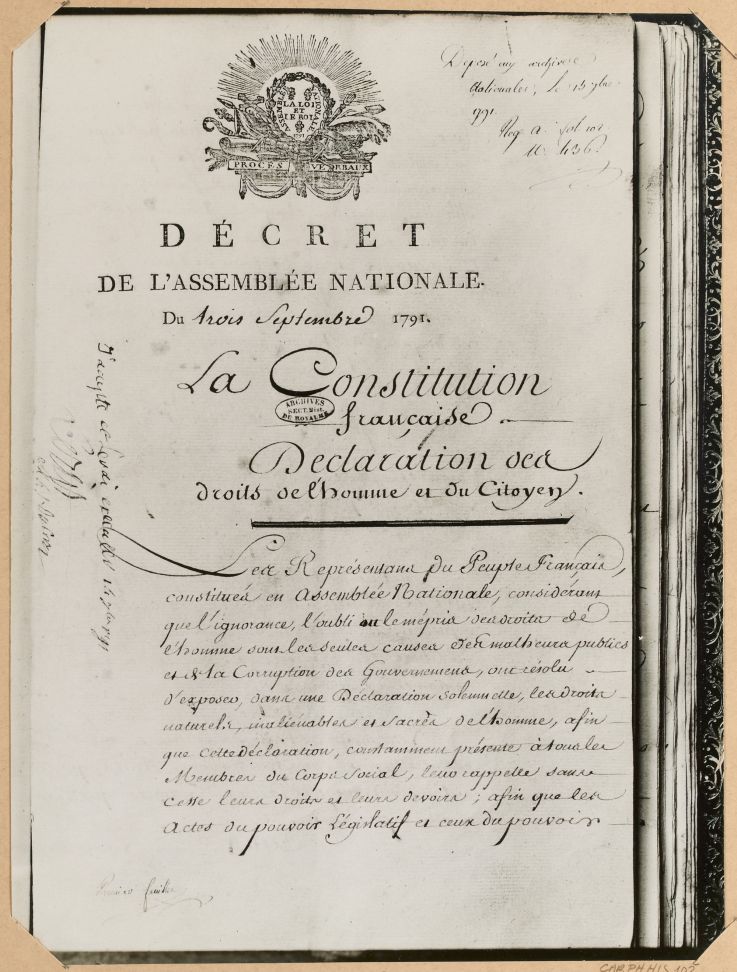 Déposé aux archives
Nationales, Le 15 7bre
1791.
Reg A. fol 102
N.º 436.
ASSEMBLÉE NATIONALE
LA LOI
ET
LE ROI
PROCES VERBAUX
DÉCRET
DE L'ASSEMBLÉE NATIONALE.
Du trois Septembre 1791.
La Constitution
française
ARCHIVES
SECT. Hist.
DU ROYAUME
Déclaration des
droits de l'homme et du Citoyen.
Les Représentans du Peuple Français,
constitués en Assemblée Nationale, considérant
que l'ignorance, l'oubli ou le mépris des droits de
l'homme sont les seules causes des malheurs publics
et de la Corruption des Gouvernemens, ont résolu
d'exposer, dans une Déclaration solemnelle, les droits
naturels, inaliénables et sacrés de l'homme, afin
que cette déclaration, constamment présente à tous les
Membres du Corps social, leur rappelle sans
cesse leurs droits et leurs devoirs ; afin que les
Actes du pouvoir Législatif et ceux du pouvoir
J'accepte et ferai exécuter 14 7bre 1791
Premier feuillet
CAR PH HIS 102